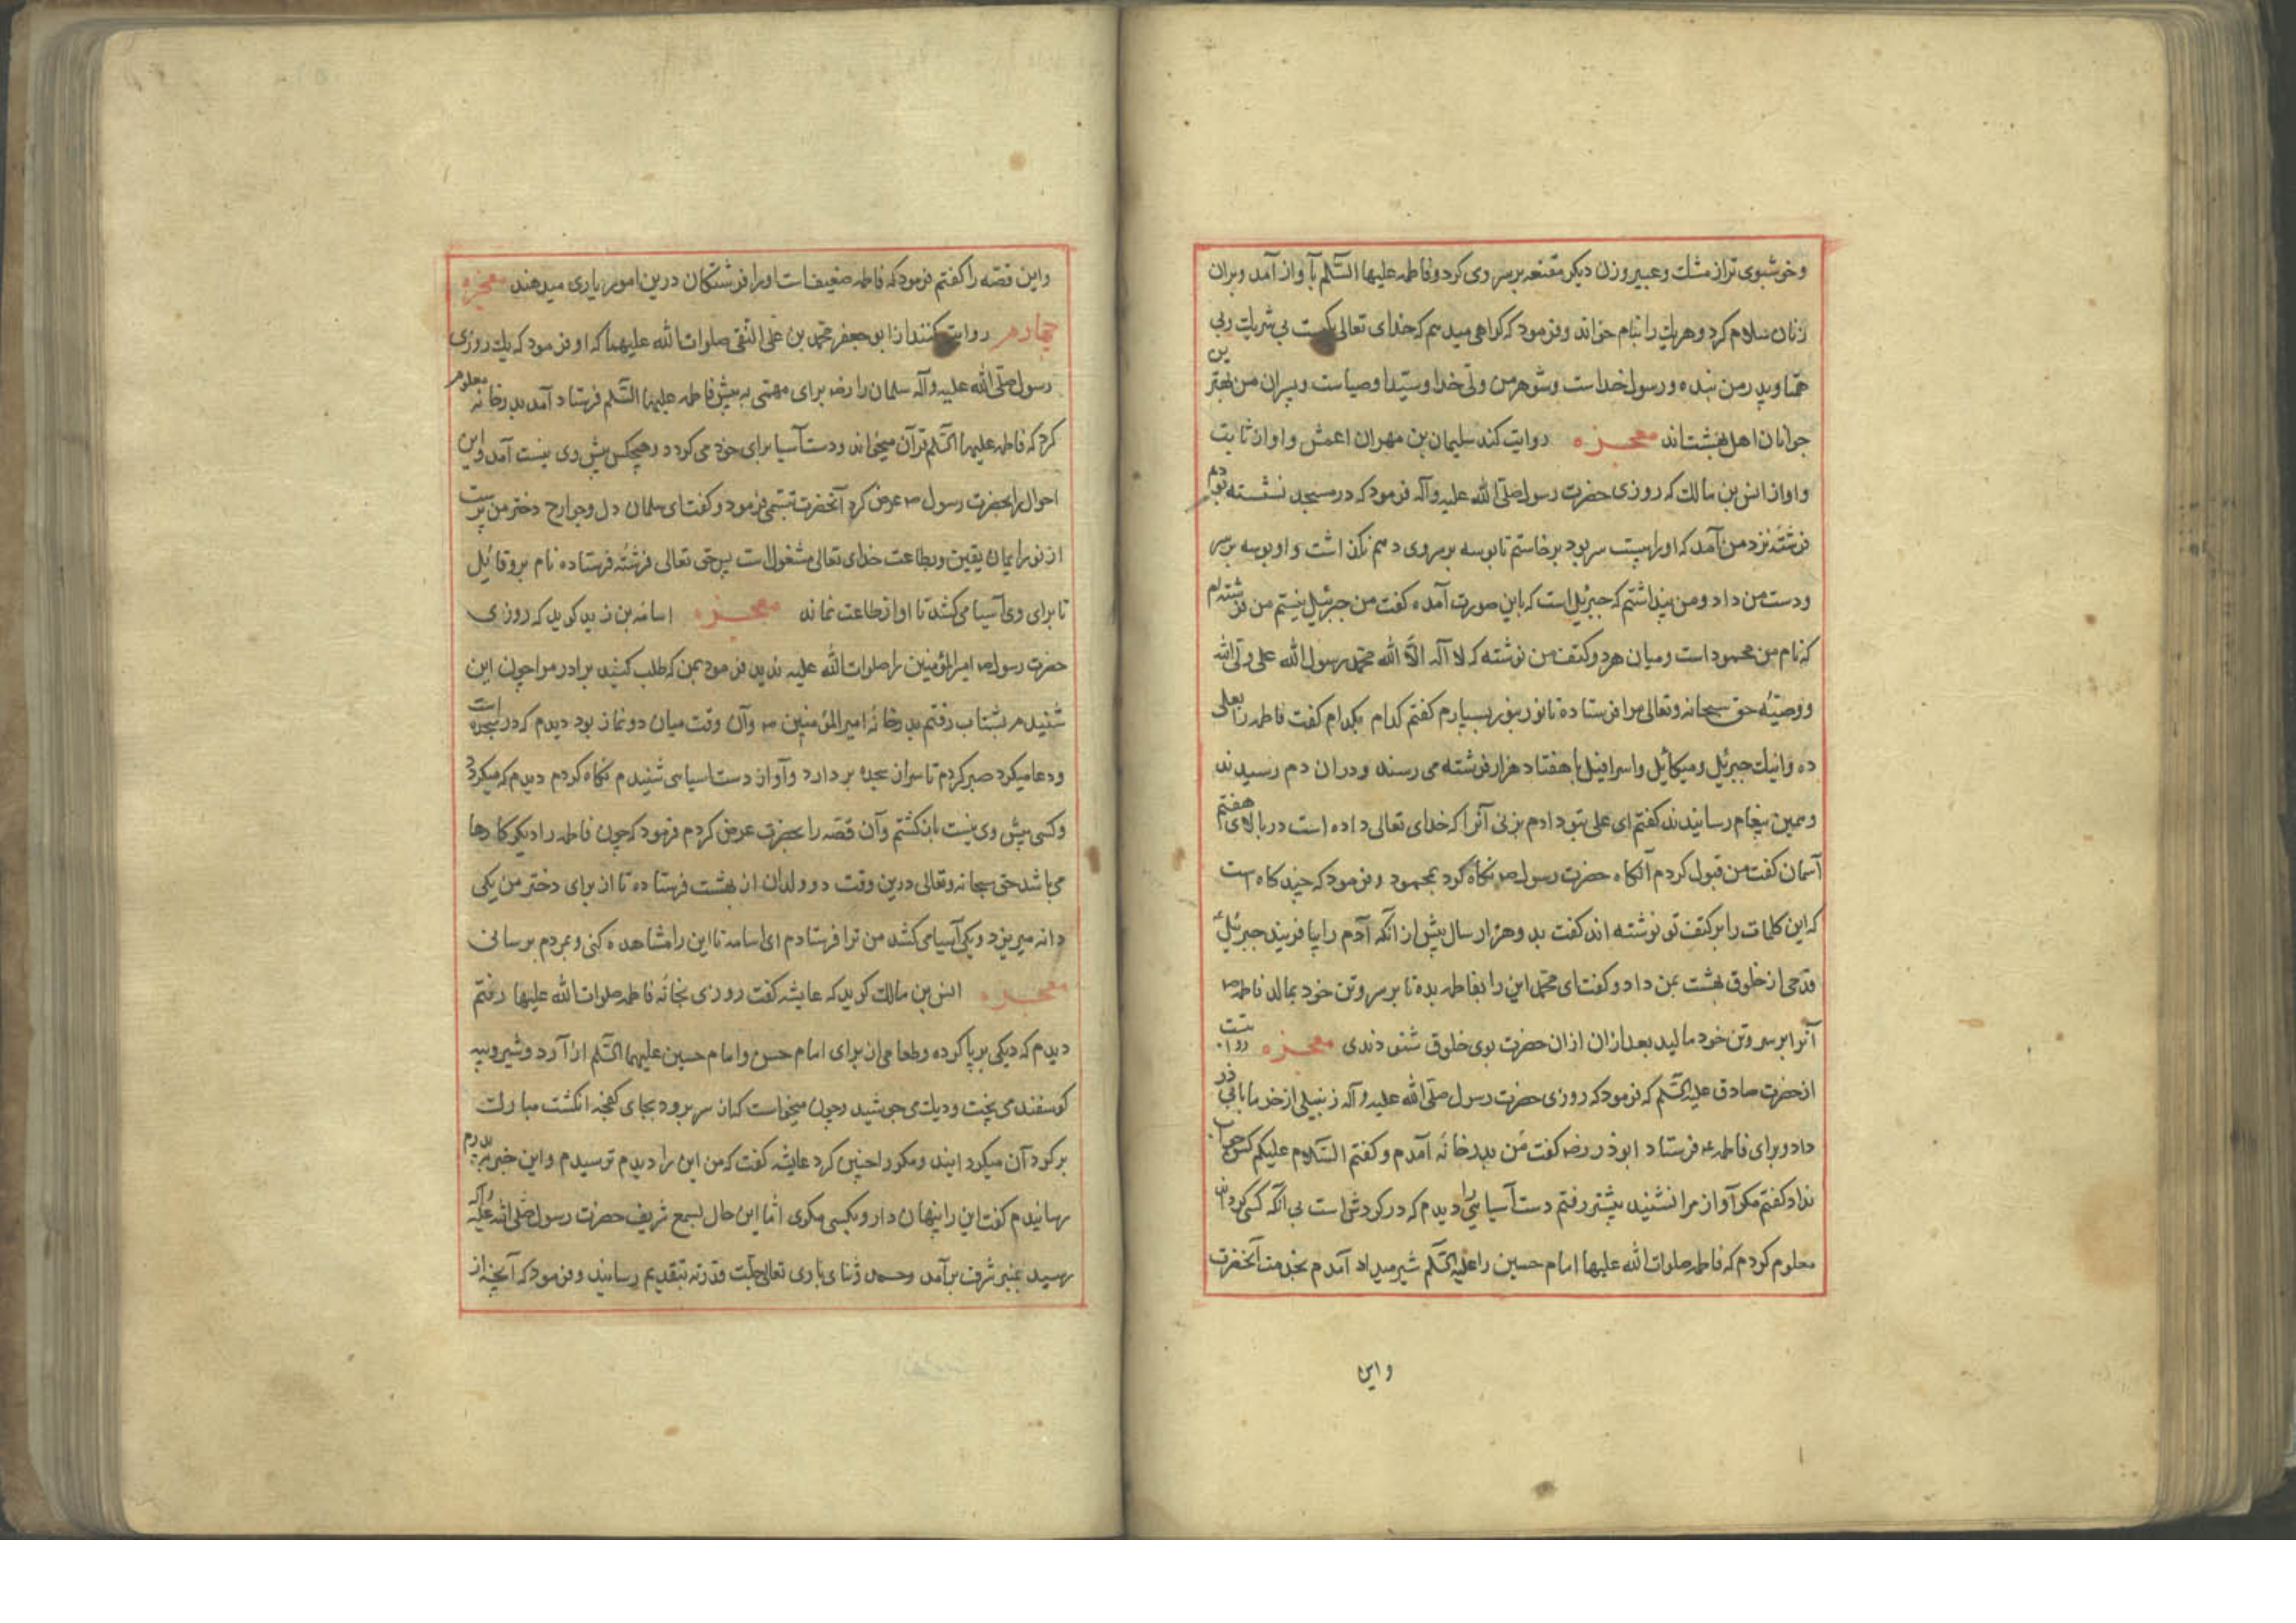 وخوشبوی تر از مشك وعبیر وزن دیكر مقنعه بر سر وی كرد و فاطمه علیها السّلم بآواز آمد وبران
زنان سلام كرد وهریك را بنام خواند وفرمود كه كواهی میدهم كه خدای تعالی یكیست بی شریك وبی
همتا وپدر من بنده ورسول خداست وشوهر من ولّی خدا وسیّد اوصیاست وپسران من بهترین
جوانان اهل بهشتاند معجزه روایت كند سلیمان بن مهران اعمش واو از ثابت
واو از انس بن مالك كه روزی حضرت رسول صلّی الله علیه وآله فرمود كه در مسجد نشسته بودم
فرشتۀ نزد من آمد كه او را بیست سر بود برخاستم تا بوسه بر سر وی دهم نكذاشت واو بوسه بر سر
ودست من داد ومن پنداشتم كه جبرئیل است كه باین صورت آمده كفت من جبرئیل نیستم من فرشته ام
كه نام من محمود است ومیان هر دو كتف من نوشته كه لا آله الّا الله محمّد رسول الله علی ولّی الله
ووصیّه حق سبحانه وتعالی مرا فرستاده تا نور بنور بسپارم كفتم كدام بكدام كفت فاطمه را بعلی
ده واینك جبرئیل ومیكائیل واسرافیل با هفتاد هزار فرشته می رسند ودران دم رسیدند
وهمین پیغام رسانیدند كفتم ای علی بتو دادم بزنی آنرا كه خدای تعالی داده است در بالای هفتم
آسمان كفت من قبول كردم آنكاه حضرت رسول ص نكاه كرد بمحمود وفرمود كه چند كاه است
كه این كلمات را بر كتف تو نوشته اند كفت بدو هزار سال پیش از انكه آدم را بیافریند جبرئیل ع
قدحی از خلوق بهشت بمن داد وكفت ای محمّد این را بفاطمه بده تا بر سر وتن خود بمالد فاطمه ص
آنرا بر سر وتن خود مالید بعد ازان ازان حضرت بوی خلوق شنودندی معجزه روایتست
از حضرت صادق علیه السّلم كه فرمود كه روزی حضرت رسول صلّی الله علیه وآله زنبیلی از خرما بابی ذر
داد وبرای فاطمه ع فرستاد ابوذر رض كفت من بدر خانه آمدم وكفتم السّلام علیكم كس جواب
نداد كفتم مكر آواز مرا نشنید پیشتر رفتم دست آسیایی را دیدم كه در كردش است بی انكه كسی كرداند
معلوم كردم كه فاطمه صلوات الله علیها امام حسین را علیه السّلم شیر میداد آمدم بخدمت آنحضرت
واین
واین قصّه را كفتم فرمود كه فاطمه ضعیف است او را فرشتكان درین امور یاری میدهند معجزه
چهارم روایت كنند از ابو جعفر محمّد بن علی التّقی صلوات الله علیهما كه او فرمود كه یك روزی
رسول صلّی الله علیه وآله سلمان را رض برای مهمّی به پیش فاطمه علیها السّلم فرستاد آمد بدر خانه معلوم
كرد كه فاطمه علیها السّلم قرآن میخواند ودست آسیا برای خود می كردد وهیچكس پیش وی نیست آمد واین
احوال را بحضرت رسول ص عرض كرد آنحضرت تبسّمی فرمود وكفت ای سلمان دل وجوارح دختر من پرست
از نور ایمان یقین وبطاعت خدای تعالی مشغول است پس حق تعالی فرشتۀ فرستاده نام بروقائیل
تا برای وی آسیا می كشد تا او از طاعت نماند معجزه اسامة بن زید كوید كه روزی
حضرت رسول ص امیر المؤمنین را صلوات الله علیه ندید فرمود بمن كه طلب كنید برادر مرا چون این
شنیدم بشتاب رفتم بدر خانۀ امیر المؤمنین ص وآن وقت میان دو نماز بود دیدم كه در سجده است
ودعا میكرد صبر كردم تا سر از سجده بردارد وآواز دست اسیا می شنیدم نكاه كردم دیدم كه میكردد
وكسی پیش وی نیست باز كشتم وآن قصّه را بحضرت عرض كردم فرمود كه چون فاطمه را دیكر كارها
می باشد حق سبحانه وتعالی درین وقت دو ولدان از بهشت فرستاده تا از برای دختر من یكی
دانه میریزد ویكی آسیا می كشد من ترا فرستادم ای اسامه تا این را مشاهده كنی وبمردم برسانی
معجزه انس بن مالك كوید كه عایشه كفت روزی بخانۀ فاطمه صلوات الله علیها رفتم
دیدم كه دیكی بر پا كرده وطعامی از برای امام حسن وامام حسین علیهما السّلم از آرد وشیر وپیه
كوسفند می پخت ودیك می جوشید وچون میخواست كه از سر برود بجای كفچه انكشت مبارك
بر كرد آن میكردانید ومكرر اچنین كرد عایشه كفت كه من این را دیدم ترسیدم واین خبر بپدرم
رسانیدم كفت این را پنهان دار وبكسی مكوی امّا این حال بسمع شریف حضرت رسول صلّی الله علیه وآله
رسید بمنبر شرف برآمد وحمد وثنای باری تعالی جلّت قدرته بتقدیم رسانید وفرمود كه آنچه از